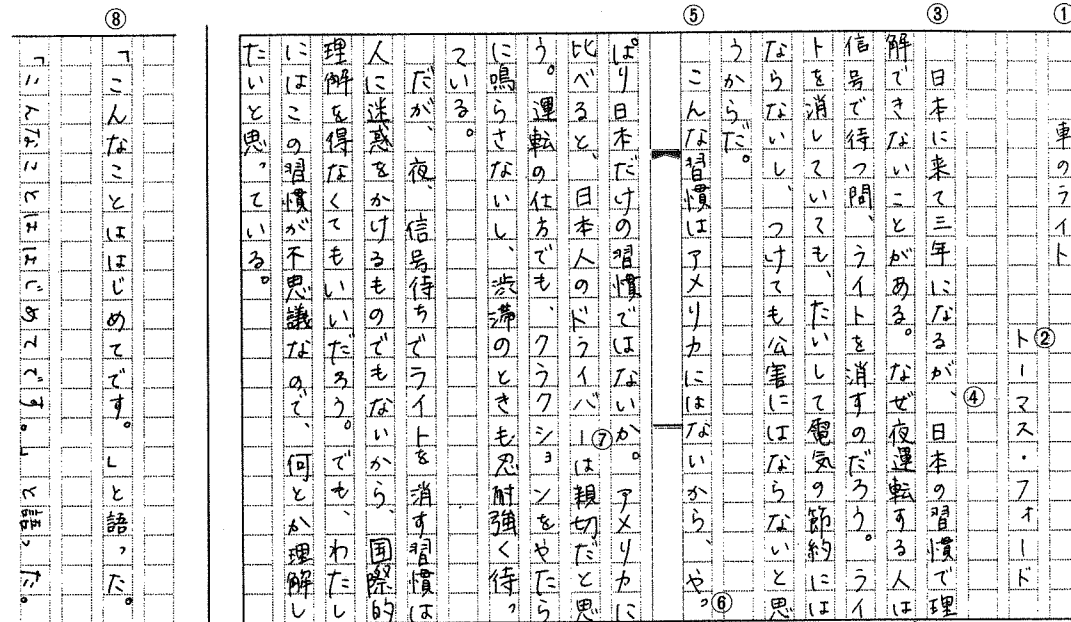 ①
車のライト
②
トーマス・フォード
③
日本に来て三年になるが、日本の習慣で理
④
解できないことがある。なぜ夜運転する人は
信号で待つ間、ライトを消すのだろう。ライ
トを消していても、たいして電気の節約には
ならないし、つけても公害にはならないと思
うからだ。
⑤
こんな習慣はアメリカにはないから、やっ
⑥
ぱり日本だけの習慣ではないか。アメリカに
⑦
比べると、日本人のドライバーは親切だと思
う。運転の仕方でも、クラクションをやたら
に鳴らさないし、渋滞のときも忍耐強く待っ
ている。
だが、夜、信号待ちでライトを消す習慣は
人に迷惑をかけるものでもないから、国際的
理解を得なくてもいいだろう。でも、わたし
にはこの習慣が不思議なので、何とか理解し
たいと思っている。
⑧
「こんなことははじめてです。」と語った。
「こんなことははじめてです。」と語った。